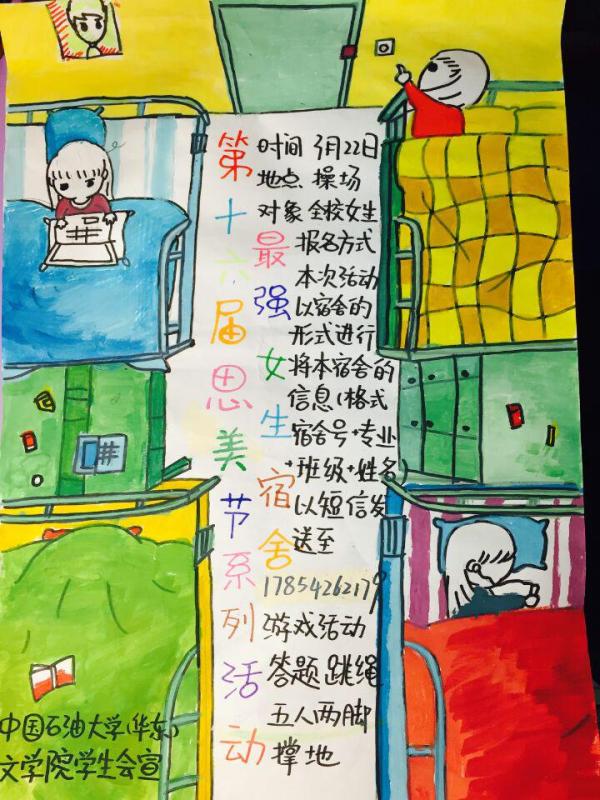 第十六届思美节系列活动
最强女生宿舍
时间 5月22日
地点 操场
对象 全校女生
报名方式
本次活动
以宿舍的
形式进行
将本宿舍的
信息(格式
宿舍号+专业
+班级+姓名
以短信发
送至
17854262179
游戏活动
答题 跳绳
五人两脚
撑地
中国石油大学(华东)
文学院学生会宣